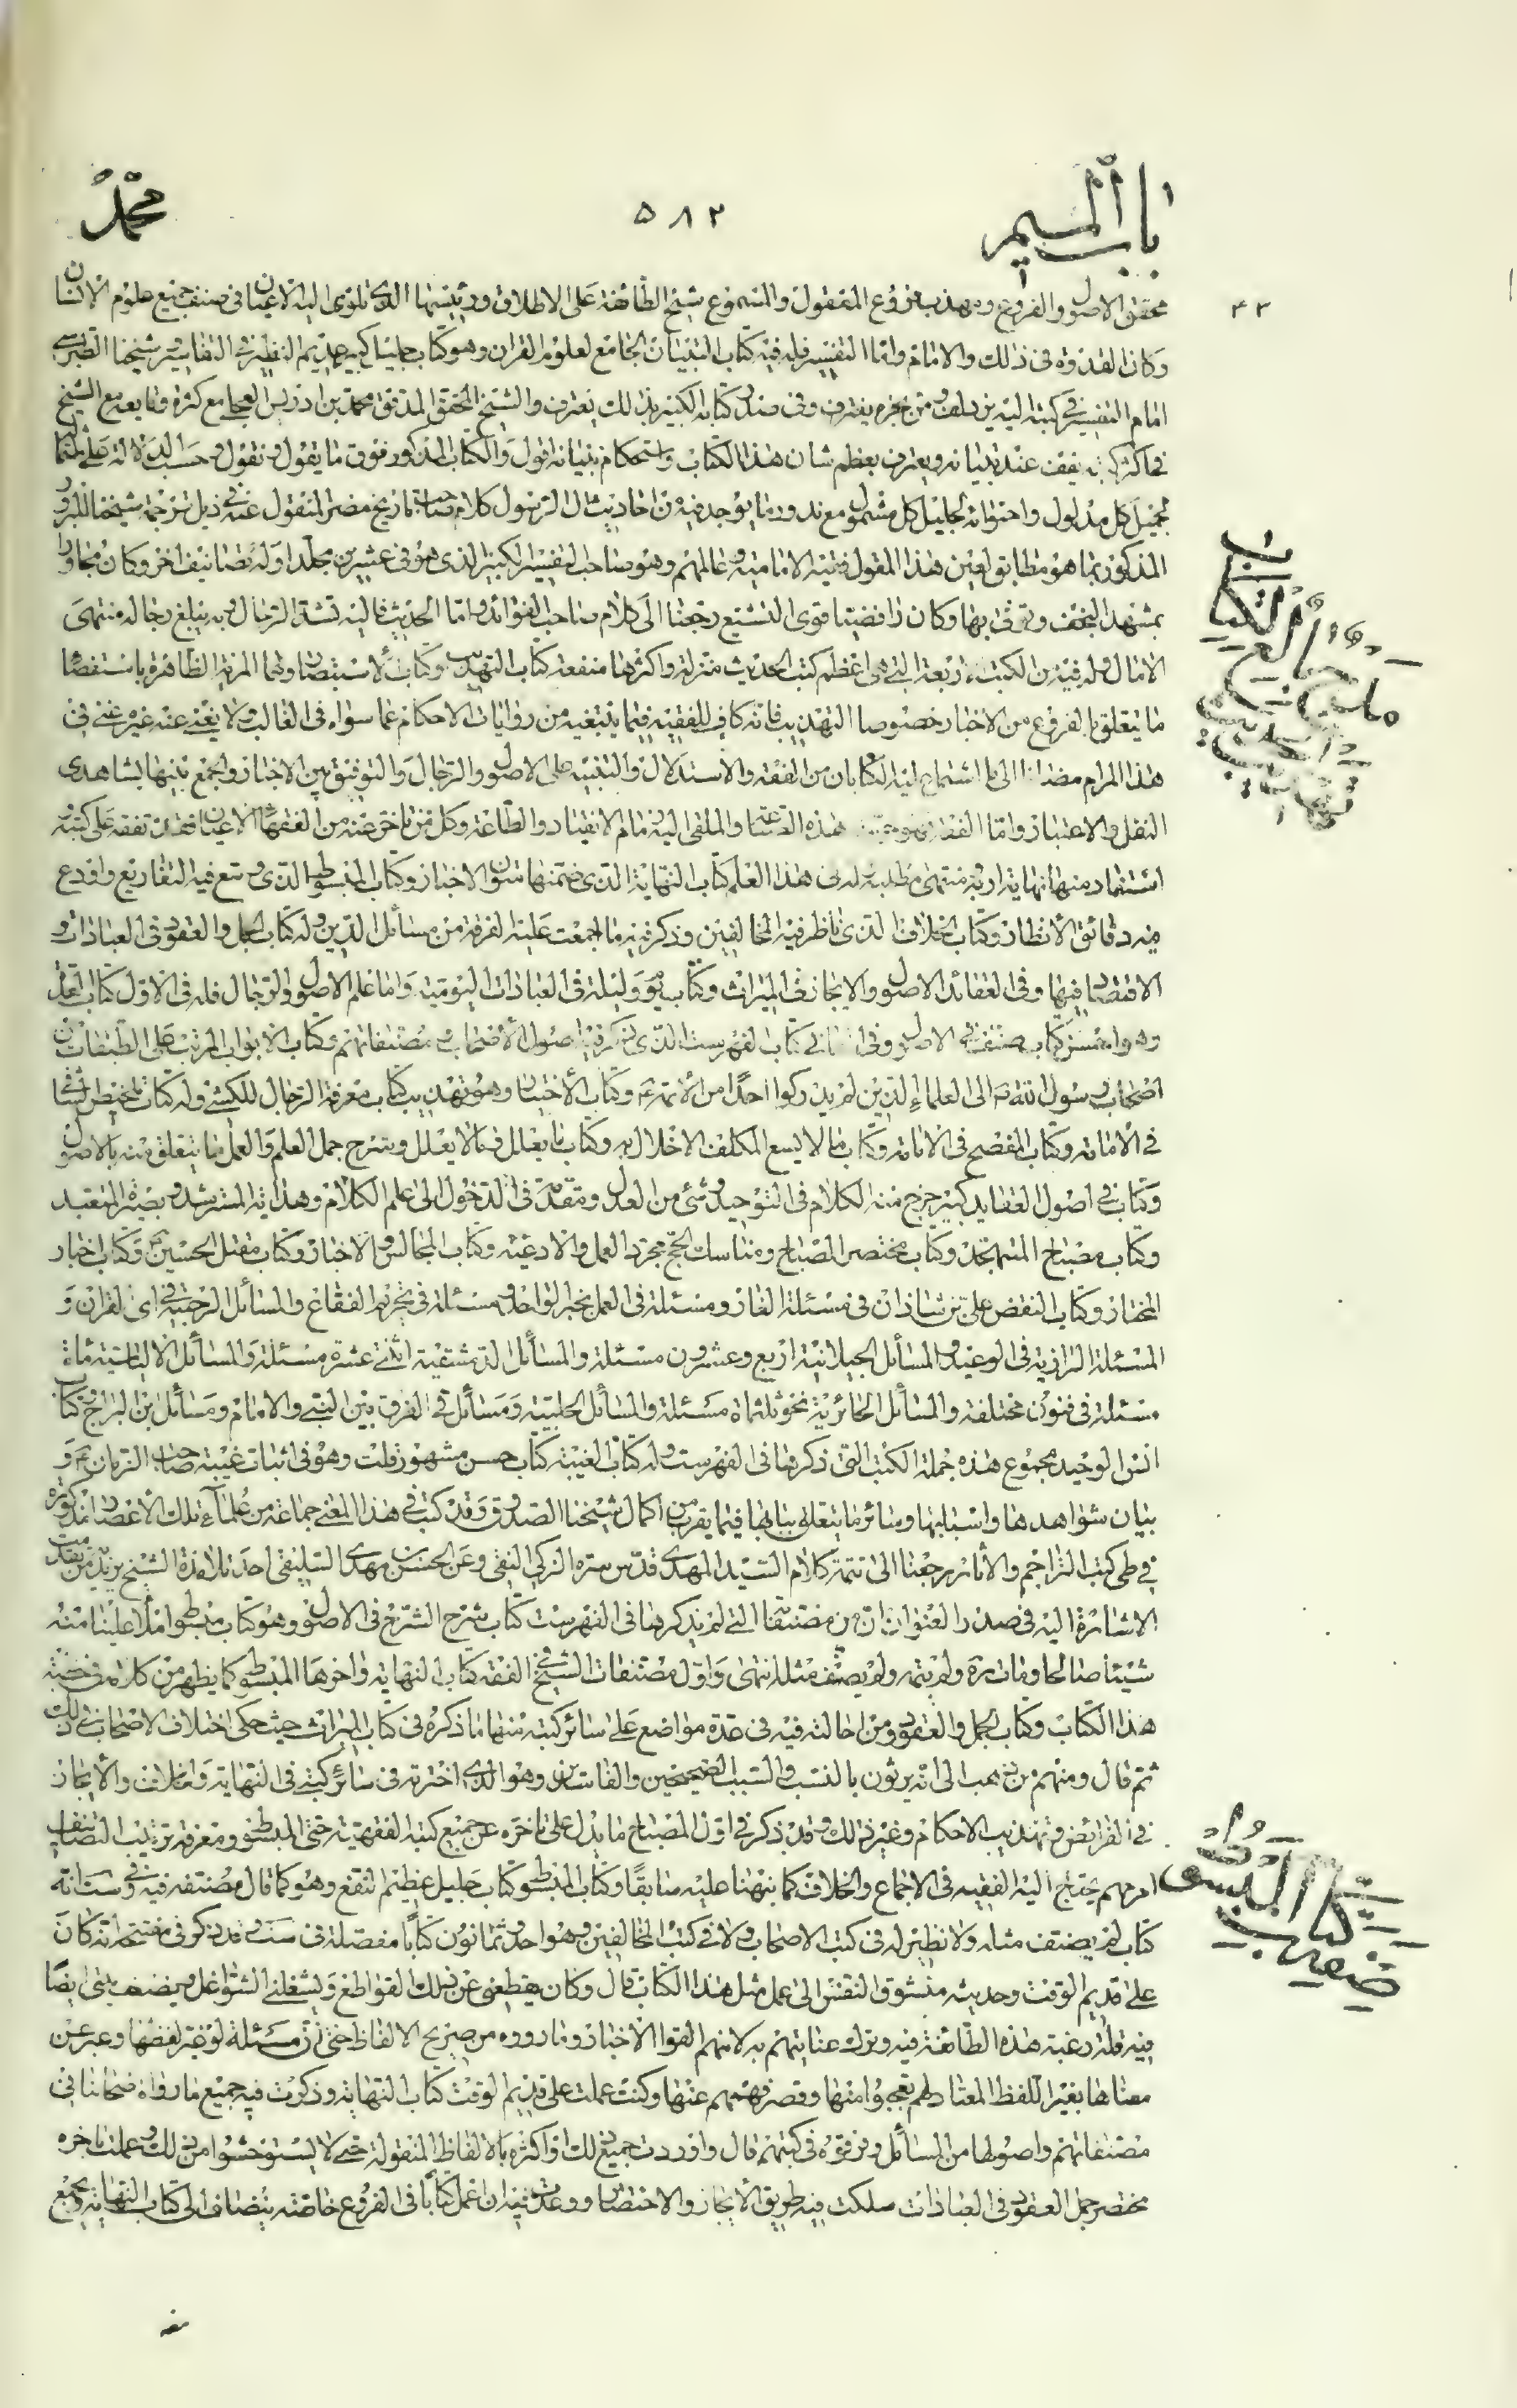 باب الميم
٥٨٢
محمد
محقق الاصول والفروع ومهذب فنون المعقول والمسموع شيخ الطائفة على الاطلاق ورئيسها الذى تلوى اليه الاعناق صنف فى جميع علوم الاسلام
وكان القدوة فى ذلك والامام واما التفسير فله فيه كتاب التبيان الجامع لعلوم القران وهو كتاب جليل كبير عديم النظير فى التفاسير شيخنا الطبرسى
امام التفسير فى كتبه اليه يزدلف ومن بحره يغترف وفى صدر كتابه الكبير بذلك يعترف والشيخ المحقق المدقق محمد بن ادريس العجلى مع كثرة وقايعه مع الشيخ
فى اكثر كتبه يقف عند تبيانه ويعترف بعظم شان هذا الكتاب واستحكام بنيانه اقول والكتاب المذكور فوق ما يقول ونقول وحسب الدلالة على
كل مدلول واحتوائه لجليل كل مشمول مع ندور ما يوجد فيه من احاديث ال الرسول كلام صاحب تاريخ مصر المنقول عنه فى ذيل ترجمة شيخنا المبرور
المذكور بما هو مطابق لعين هذا المقول فقيه الامامية وعالمهم وهو صاحب التفسير الكبير الذى هو فى عشرين مجلدا وله تصانيف اخر وكان مجاورا
بمشهد النجف وتوفى بها وكان رافضيا قوى التشيع رجعنا الى كلام صاحب الفوائد واما الحديث فاليه تشد الرحال وبه يبلغ رجاله منتهى
الامال وله فيه من الكتب الاربعة التى هى اعظم كتب الحديث منزلة واكثرها منفعة كتاب التهذيب وكتاب الاستبصار ولهما المزية الظاهرة باستقصاء
ما يتعلق بالفروع من الاخبار خصوصا التهذيب فانه كاف للفقيه فيما يبتغيه من روايات الاحكام عما سواه فى الغالب ولا يغنى عنه غيره فى
هذا المرام مضافا الى ما اشتمل عليه الكتابان من الفقه والاستدلال والتنبيه على الاصول والرجال والتوفيق بين الاخبار والجمع بينها بشاهدى
النقل والاعتبار واما الفقه فهو هذه الصناعة والملقى اليه زمام الانقياد والطاعة وكل من تاخر عنه من الفقهاء الاعيان فقد تفقه على كتبه
استفاد منها نهاية اربه ومنتهى مطلبه وله فى هذا العلم كتاب النهاية الذى ضمنها متون الاخبار وكتاب المبسوط الذى وسع فيه التفاريع واودع
فيه دقائق الانظار وكتاب الخلاف الذى ناظر فيه المخالفين وذكر فيه ما اجمعت عليه الفرقة من مسائل الدين وله كتاب الجمل والعقود فى العبادات و
الاقتصاد فيها وفى العقائد الاصول والايجاز فى الميراث وكتاب يوم وليلة فى العبادات اليومية واما علم الاصول والرجال فله فى الاول كتاب العدة
وهو احسن كتاب صنف فى الاصول وفى الثانى كتاب الفهرست الذى ذكر فيه اصول الاصحاب ومصنفاتهم وكتاب الابواب المرتب على الطبقات من
اصحاب رسول الله ص الى العلماء الذين لم يدركوا احدا من الائمة ع وكتاب الاختيار وهو تهذيب كتاب معرفة الرجال للكشى وله كتاب تلخيص الشافى
فى الامامة وكتاب المفصح فى الامامة وكتاب ما لا يسع المكلف الاخلال به وكتاب ما يعلل وما لا يعلل وشرح جمل العلم والعمل ما يتعلق منه بالاصول
وكتاب فى اصول العقايد كبير خرج منه الكلام فى التوحيد وشئ من العدل ومقدمة فى الدخول الى علم الكلام وهداية المسترشد وبصيرة المتعبد
وكتاب مصباح المتهجد وكتاب مختصر المصباح ومناسك الحج مجرد العمل والادعية وكتاب المجالس والاخبار وكتاب مقتل الحسين ع وكتاب اخبار
المختار وكتاب النقض على بن شاذان فى مسئلة الغار ومسئلة فى العمل بخبر الواحد ومسئلة فى تحريم الفقاع والمسائل الرجبية فى اى القران و
المسئلة الرازية فى الوعيد والمسائل الجيلانية اربع وعشرون مسئلة والمسائل الدمشقية اثنى عشرة مسئلة والمسائل الالياسية مائة
مسئلة فى فنون مختلفة والمسائل الحائرية نحو ثلثمائة مسئلة والمسائل الحلبية ومسائل فى الفرق بين النبى والامام ومسائل بن البراج وكتاب
انس الوحيد مجموع هذه جملة الكتب التى ذكرها فى الفهرست وله كتاب الغيبة كتاب حسن مشهور قلت وهو فى اثبات غيبة صاحب الزمان ع و
بيان شواهدها واسبابها وسائر ما يتعلق ببابها فيما يقرب من اكمال شيخنا الصدوق وقد كتب فى هذا المعنى جماعة من علماء تلك الاعصار مذكورة
فى طى كتب التراجم والاثار رجعنا الى تتمة كلام السيد المهدى قدس سره الزكى النقى وعن الحسن بن مهدى السليقى احد تلامذة الشيخ
الاشارة اليه فى صدر العنوان ان من مصنفاتنا التى لم يذكرها فى الفهرست كتاب شرح الشرح فى الاصول وهو كتاب مبسوط املا علينا منه
شيئا صالحا ومات ره ولم يتمه ولم يصنف مثله انتهى واول مصنفات الشيخ فى الفقه كتاب النهاية واخرها المبسوط كما يظهر من كلامه فى خطبة
هذا الكتاب وكتاب الجمل والعقود ومن احالته فيه فى عدة مواضع على سائر كتبه منها ما ذكره فى كتاب الميراث حيث حكى اختلاف الاصحاب فى ذلك
ثم قال ومنهم من ذهب الى انه يرثون بالنسب والسبب الصحيحين والفاسدين وهو الذى اخترته فى سائر كتبى فى النهاية والخلاف والايجاز
فى الفرائض وتهذيب الاحكام وغير ذلك وقد ذكر فى اول المصباح ما يدل على تاخره عن جميع كتبه الفقهية حتى المبسوط ومعرفة ترتيب التصانيف
امر مهم يحتاج اليه الفقيه فى الاجماع والخلاف كما نبهنا عليه سابقا وكتاب المبسوط كتاب جليل عظيم النفع وهو كما قال مصنفه فيه وفى ست انه
كتاب لم يصنف مثله ولا نظير له فى كتب الاصحاب ولا فى كتب المخالفين وهو احد وثمانون كتابا مفصلة فى ست وقد ذكر فى مفتتحه انه كان
على قديم الوقت وحديثه متشوق النفس الى عمل مثل هذا الكتاب قال وكان يقطعنى عن ذلك القواطع ويشغلنى الشواغل ويضعف نيتى ايضا
فيه قلة رغبة هذه الطائفة فيه وترك عنايتهم به لانهم القوا الاخبار وما رووه من صريح الالفاظ حتى ان مسئلة لو غير لفظها وعبر عن
معناها بغير اللفظ المعتاد لهم تعجبوا منها وقصر فهمهم عنها وكنت عملت على قديم الوقت كتاب النهاية وذكرت فيه جميع ما رواه اصحابنا فى
مصنفاتهم واصولها من المسائل وفرقوه فى كتبهم قال واوردت جميع ذلك او اكثره بالالفاظ المنقولة حتى لا يستوحشوا من ذلك وعملت باخره
مختصر جمل العقود فى العبادات سلكت فيه طريق الايجاز والاختصار ووعدت فيه ان اعمل كتابا فى الفروع خاصة ينضاف الى كتاب النهاية ويجمع